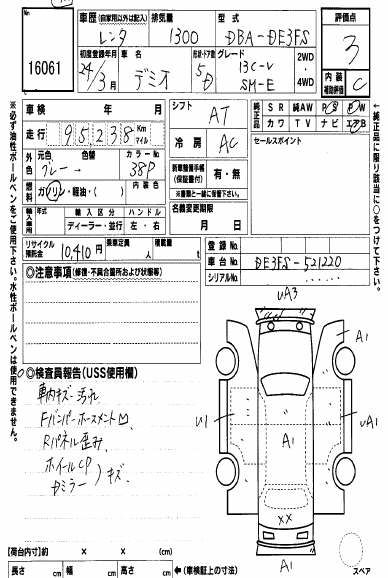 No.
16061
車歴 (自家用以外は記入)
レンタ
排気量
1300
型式
DBA-DE3FS
評価点
3
初度登録年月
24/3月
車名
デミオ
形状・ドア数
5D
グレード
13C-V
SM-E
2WD
4WD
内装
補助評価
C
車検 年 月
シフト
AT
純正品
SR 純AW PS PW
カワ TV ナビ エアB
走行 95,238 Km マイル
冷房
AC
セールスポイント
外色
元色 色替
グレー →
カラーNo.
38P
新車整備手帳
(保証書付)
有・無
※書類と一緒に保管下さい。
燃料
ガソリン・軽油・( )
内装色
輸入車用
年式
輸入区分
ディーラー・並行
ハンドル
左・右
名義変更期限
月 日
リサイクル預託金
10,410円
乗車定員
人
積載量
t
登録No.
車台No.
DE3FS-521220
シリアルNo.
◎注意事項 (修復・不具合箇所および状態等)
◎検査員報告 (USS使用欄)
車内キズ・汚れ
Fバンパーホースメント凹
Rパネル歪み
ホイールCP
ドミラー
キズ
UA3
A1
U1
A1
UA1
XX
A1
スペア
[荷台内寸] 約 × × (cm)
長さ cm 幅 cm 高さ cm
←(車検証上の寸法)
※必ず油性ボールペンをご使用下さい。水性ボールペンは使用できません。
※純正品に限り該当に○をつけて下さい。